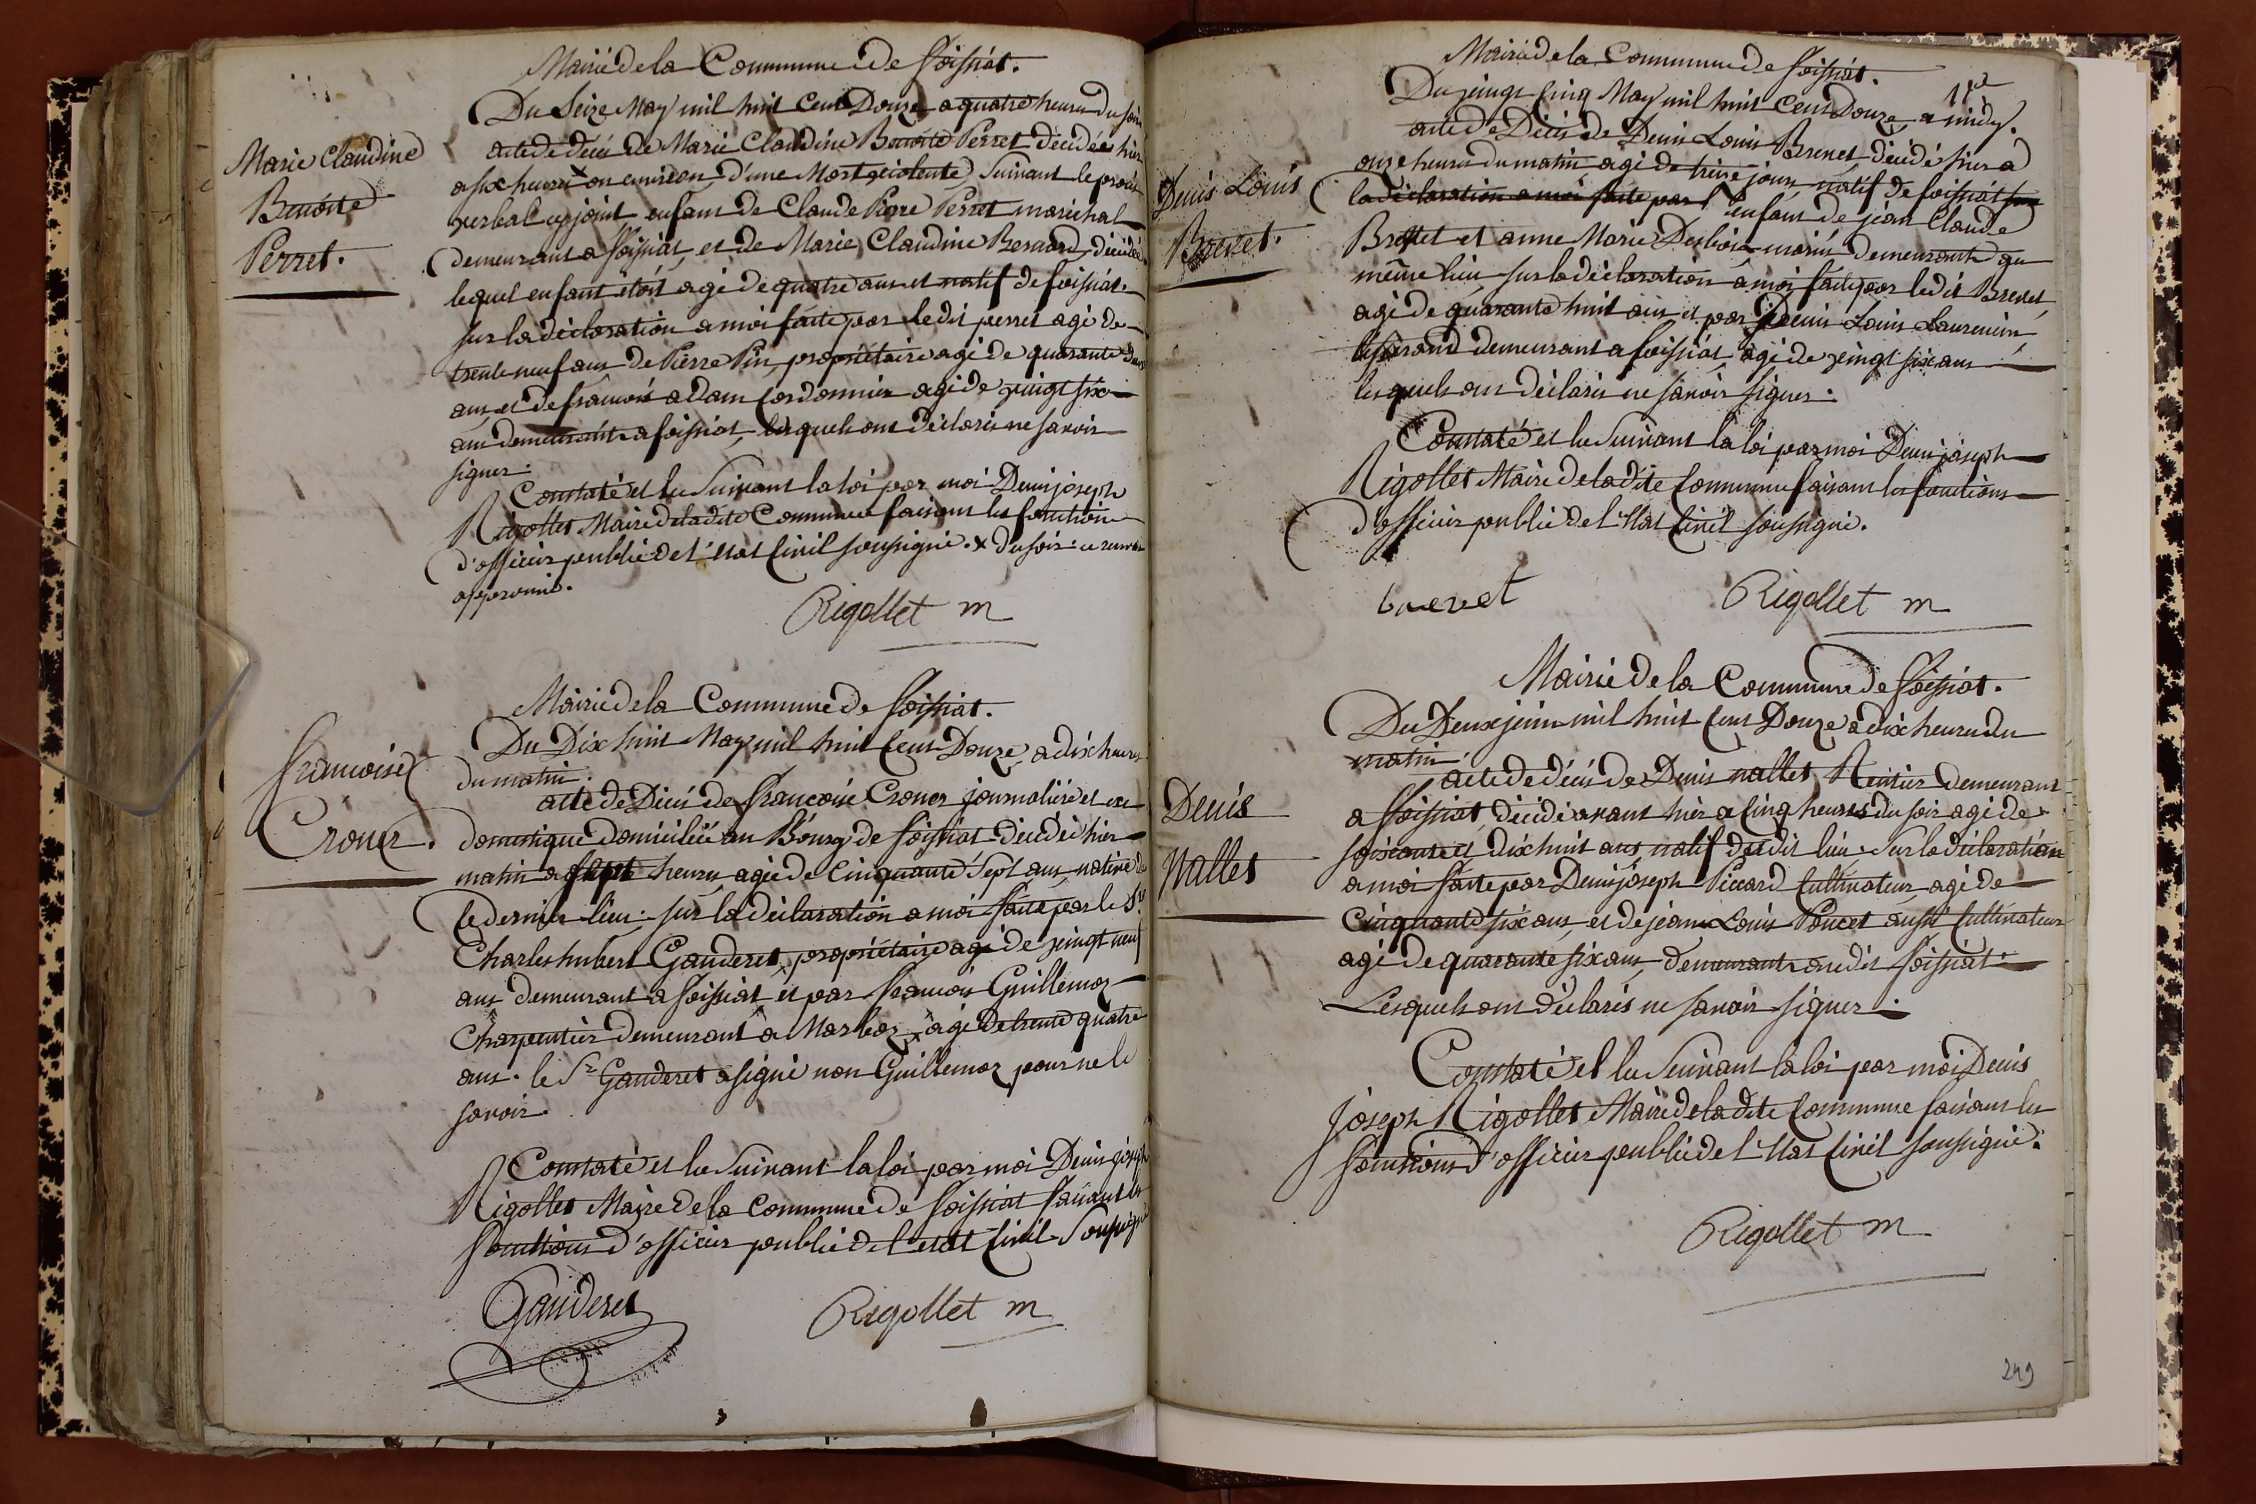 Mairie de la Commune de foissiat.
Du Seize May mil huit Cent Douze a quatre heures du soir
acte de décés de Marie Claudine Benoite Perret décédée hier
a six heures x ou environ, d'une Mort violente, Suivant le procès
verbal cy joint enfant de Claude Pierre Perret marechal
demeurant a foissiat, et de Marie Claudine Bernard, décédée
lequel enfant étoit agé de quatre ans et natif de foissiat.
sur la déclaration a moi faite par le dit perret agé de
trente neuf ans de Pierre Pin, propriétaire agé de quarante deux
ans, et de francois adam Cordonnier agé de vingt six
ans demeurants a foissiat, lesquels ont déclarés ne savoir
signer.
Constaté et lu Suivant la loi par moi Denis joseph
Rigollet Maire de ladite Commune faisant les fonctions
d'officier public de l'etat Civil soussigné. x du soir: ce renvoi
approuvé.
Rigollet m
Marie Claudine
Benoite
Perret.
Mairie de la Commune de foissiat.
Du Dix huit May mil huit Cent Douze, a dix heures
du matin.
acte de Décés de francoise Croner journalière et
domestique domiciliée au Bourg de foissiat décédée hier
matin a sept heures, agée de Cinquante Sept ans, native de
ce dernier lieu: sur la déclaration a moi faite par le Sr
Charles hubert Gauderet, propriétaire agé de vingt neuf
ans demeurant a foissiat et par francois Guillemoz
Charpentier demeurant a Marboz, agé de trente quatre
ans. le Sr Gauderet a signé non Guillemoz pour ne le
savoir
Constaté et lu Suivant la loi par moi Denis joseph
Rigollet Maire de la Commune de foissiat faisant les
fonctions d'officier public de l'etat Civil Soussigné
Gauderet
Rigollet m
francoise
Mairie de la Commune de foissiat.
Du vingt Cinq May mil huit Cent Douze, a midy.
acte de Décés de Denis Louis Brevet décédé hier a
onze heures du matin, agé de treize jours, natif de foissiat
la déclaration a moi faite par l'enfant de jean Claude
Brevet et anne Marie Desbois mariés demeurants au
même lieu sur la déclaration a moi faite par le dit Brevet,
agé de quarante huit ans et par Denis Louis Laurencin
demeurant a foissiat, agé de vingt six ans
lesquels ont déclarés ne savoir signer.
Constaté et lu Suivant la loi par moi Denis joseph
Rigollet Maire de ladite Commune faisant les fonctions
d'officier public de l'etat Civil soussigné.
brevet
Rigollet m
Denis Louis
Brevet.
Mairie de la Commune de foissiat.
Du Deux juin mil huit Cent Douze a dix heures du
matin
acte de décés de Denis nallet Rentier demeurant
a foissiat, décédé avant hier a Cinq heures du soir agé de
soixante et dix huit ans, natif dudit lieu. Sur la déclaration
a moi faite par Denis joseph Piccard Cultivateur, agé de
Cinquante six ans, et de jean Louis Poncet aussi Cultivateur
agé de quarante six ans, demeurants audit foissiat.
Lesquels ont déclarés ne savoir signer.
Constaté et lu Suivant la loi par moi Denis
joseph Rigollet Maire de ladite Commune faisant les
fonctions d'officier public de l'etat Civil soussigné.
Rigollet m
Denis
Nallet
249